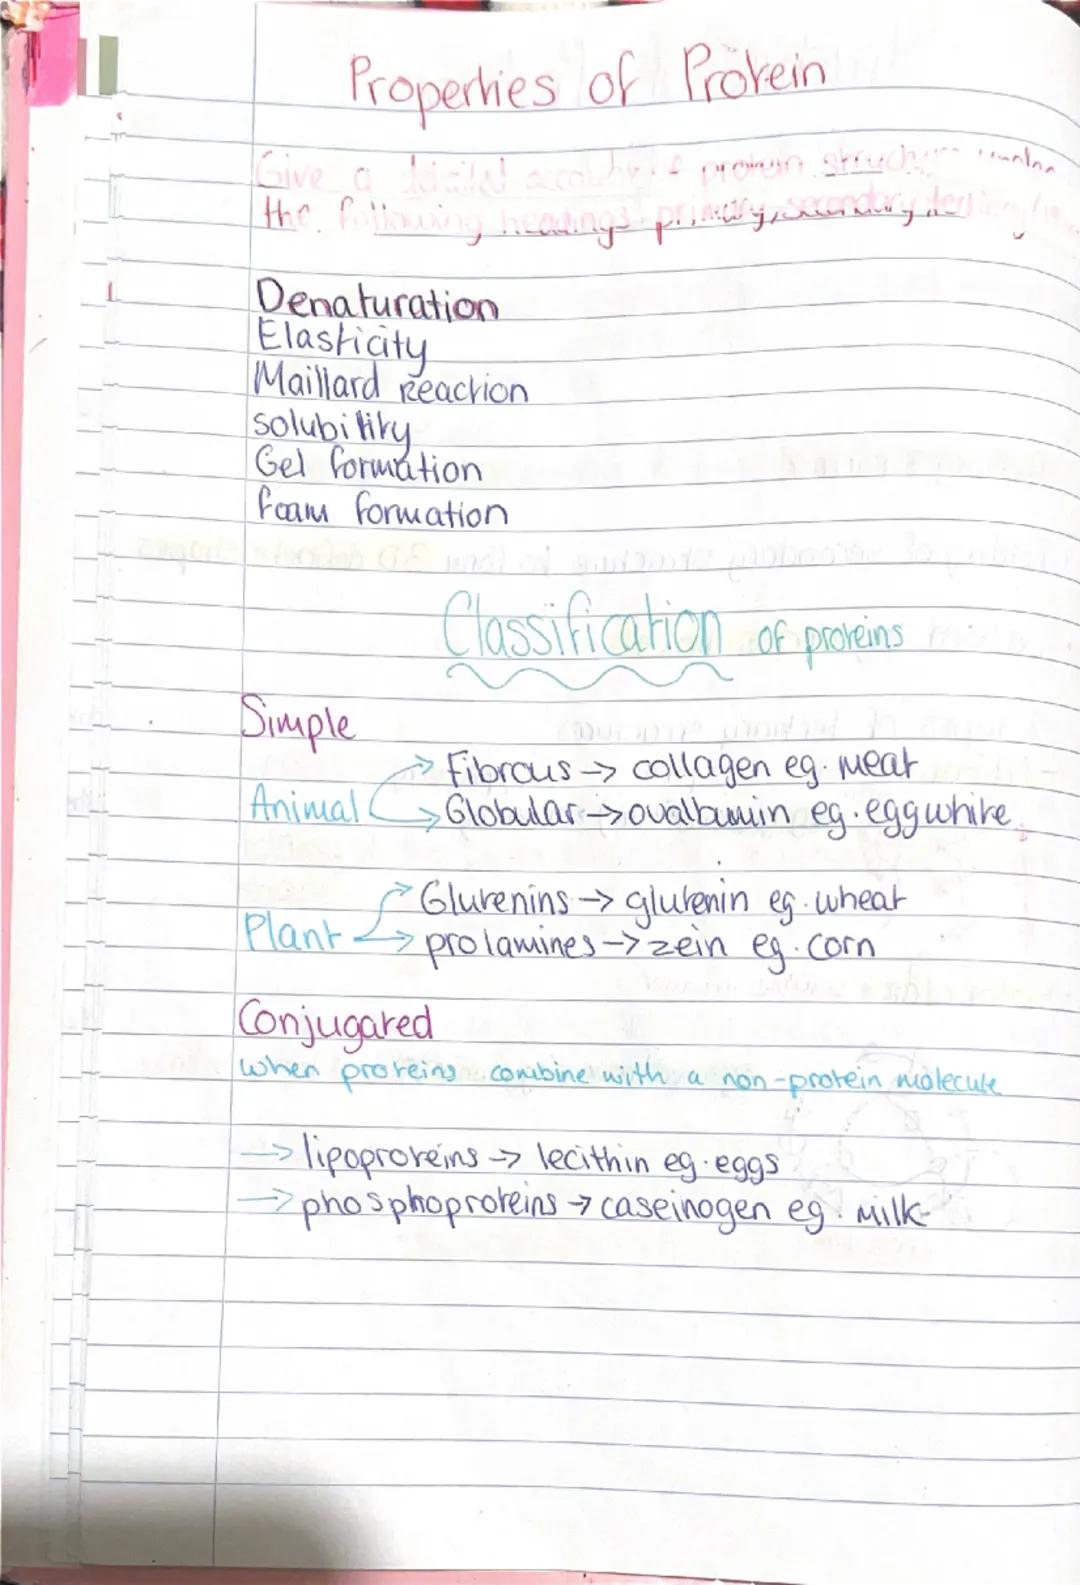 Properties of Protein
Give a detailed account of protein structure under
the following headings primary, secondary, tertiary
Denaturation
Elasticity
Maillard Reaction
solubility
Gel formation
foam formation
Classification of proteins
Simple
Animal
→ Fibrous → collagen eg. meat
→ Globular → ovalbumin eg. egg white
Plant
→ Glutenins → glutenin eg. wheat
→ prolamines → zein eg. corn
Conjugated
when proteins combine with a non-protein molecule
→ lipoproteins → lecithin eg. eggs
→ phosphoproteins → caseinogen eg. milk